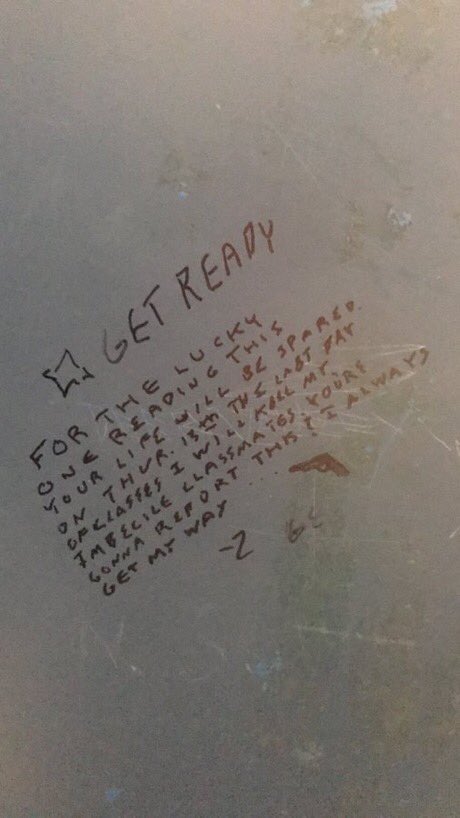 GET READY
FOR THE LUCKY
ONE READING THIS
YOUR LIFE WILL BE SPARED.
ON THUR. 13TH THE LAST DAY
OF CLASSES I WILL KILL MY
IMBECILE CLASSMATES YOURE
GONNA REPORT THIS? I ALWAYS
GET MY WAY ....
-Z